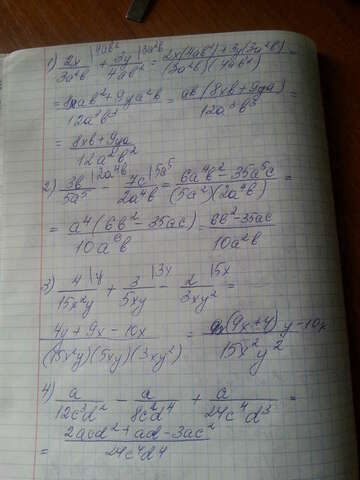 1) 2x/3a²b |4ab² + 3y/4ab² |3a²b = 2x(4ab²)+3y(3a²b)/(3a²b)(4ab²) =
= 8xab²+9ya²b/12a³b³ = ab(8xb+9ya)/12a³b³ =
= 8xb+9ya/12a²b²
2) 3b/5a⁵ |2a⁴b − 7c/2a⁴b |5a⁵ = 6a⁴b²−35a⁵c/(5a²)(2a⁴b) =
= a⁴(6b²−35ac)/10a⁶b = 6b²−35ac/10a²b
3) 4/15x²y |y + 3/5xy |3x − 2/3xy² |5x =
4y+9x−10x/(15x²y)(5xy)(3xy²) = (9x+4)y−10x/15x²y²
4) a/12c³d² − a/8c²d⁴ + a/24c⁴d³ =
= 2acd²+ad−3ac²/24c⁴d⁴